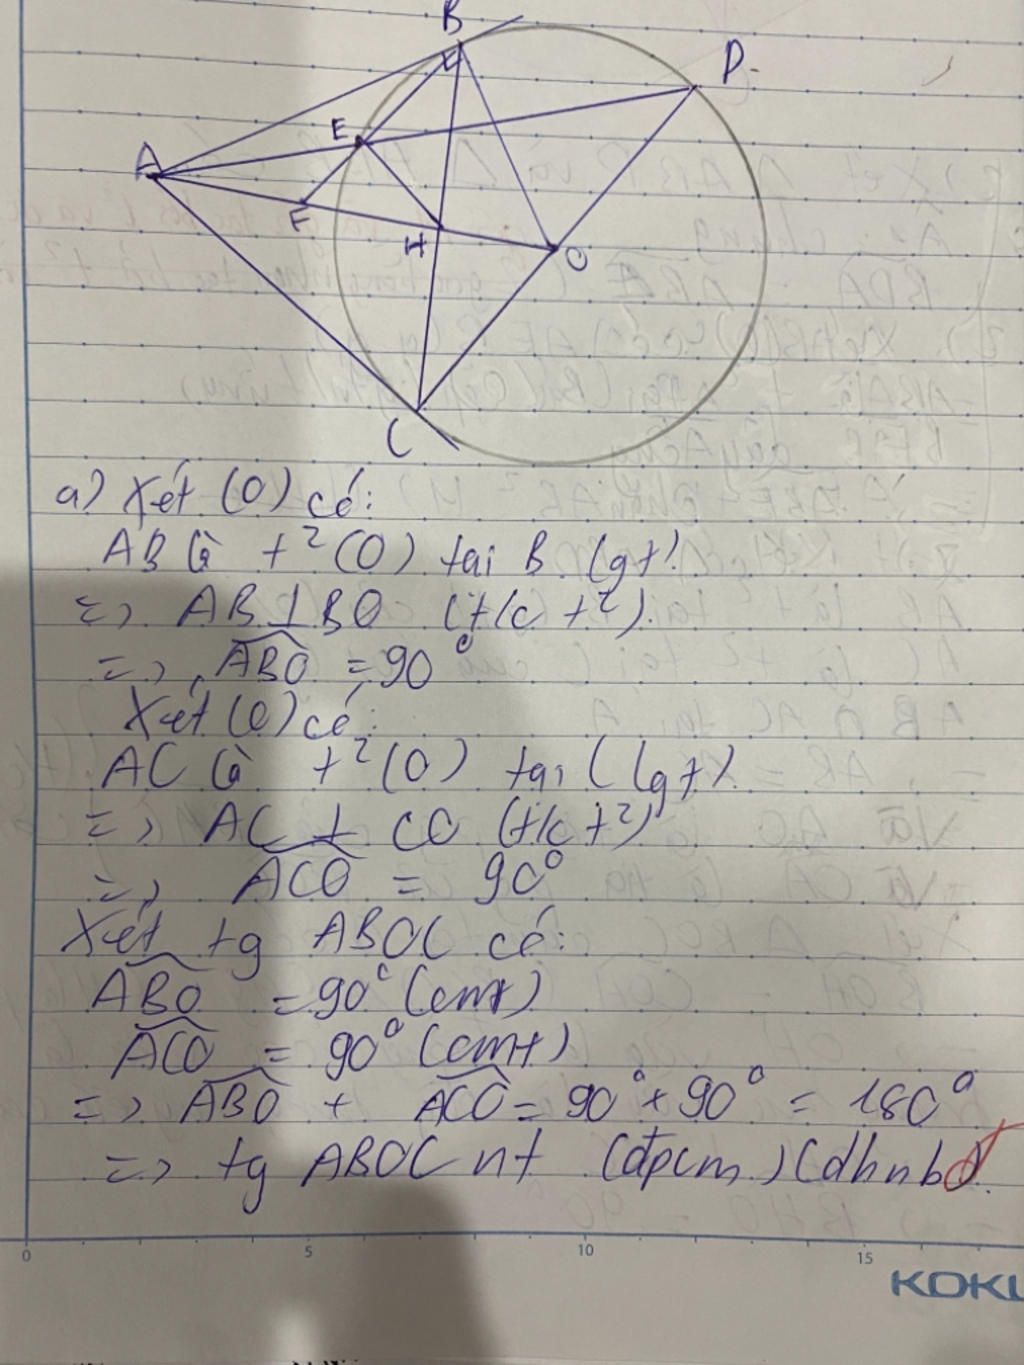 B
D
E
A
F
H
O
C
a) Xét (O) có:
AB là t² (O) tại B (gt)
=> AB ⊥ BO (t/c t²)
=> ABO = 90°
Xét (O) có:
AC là t² (O) tại C (gt)
=> AC ⊥ CO (t/c t²)
=> ACO = 90°
Xét tg ABOC có:
ABO = 90° (cmt)
ACO = 90° (cmt)
=> ABO + ACO = 90° + 90° = 180°
=> tg ABOC nt (đpcm) (dhnb)
0 5 10 15
KOKU